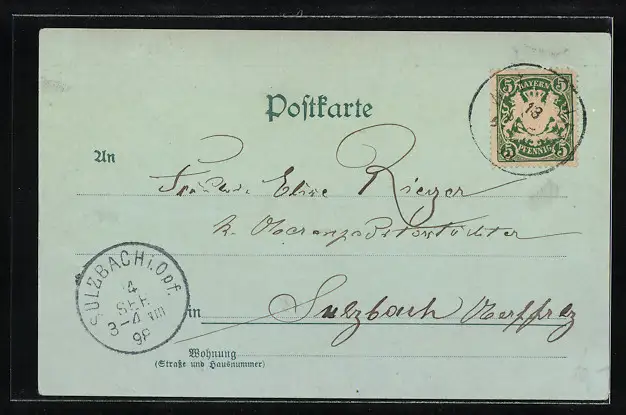 Postkarte
5 BAYERN 5
5 PFENNIG 5
13
An
Fräulein Elise Rieger
k. Oberamtsrichterstochter
SULZBACH i.Opf.
4
SEP
3-4 NM
98
in Sulzbach Oberpfalz
Wohnung
(Straße und Hausnummer)